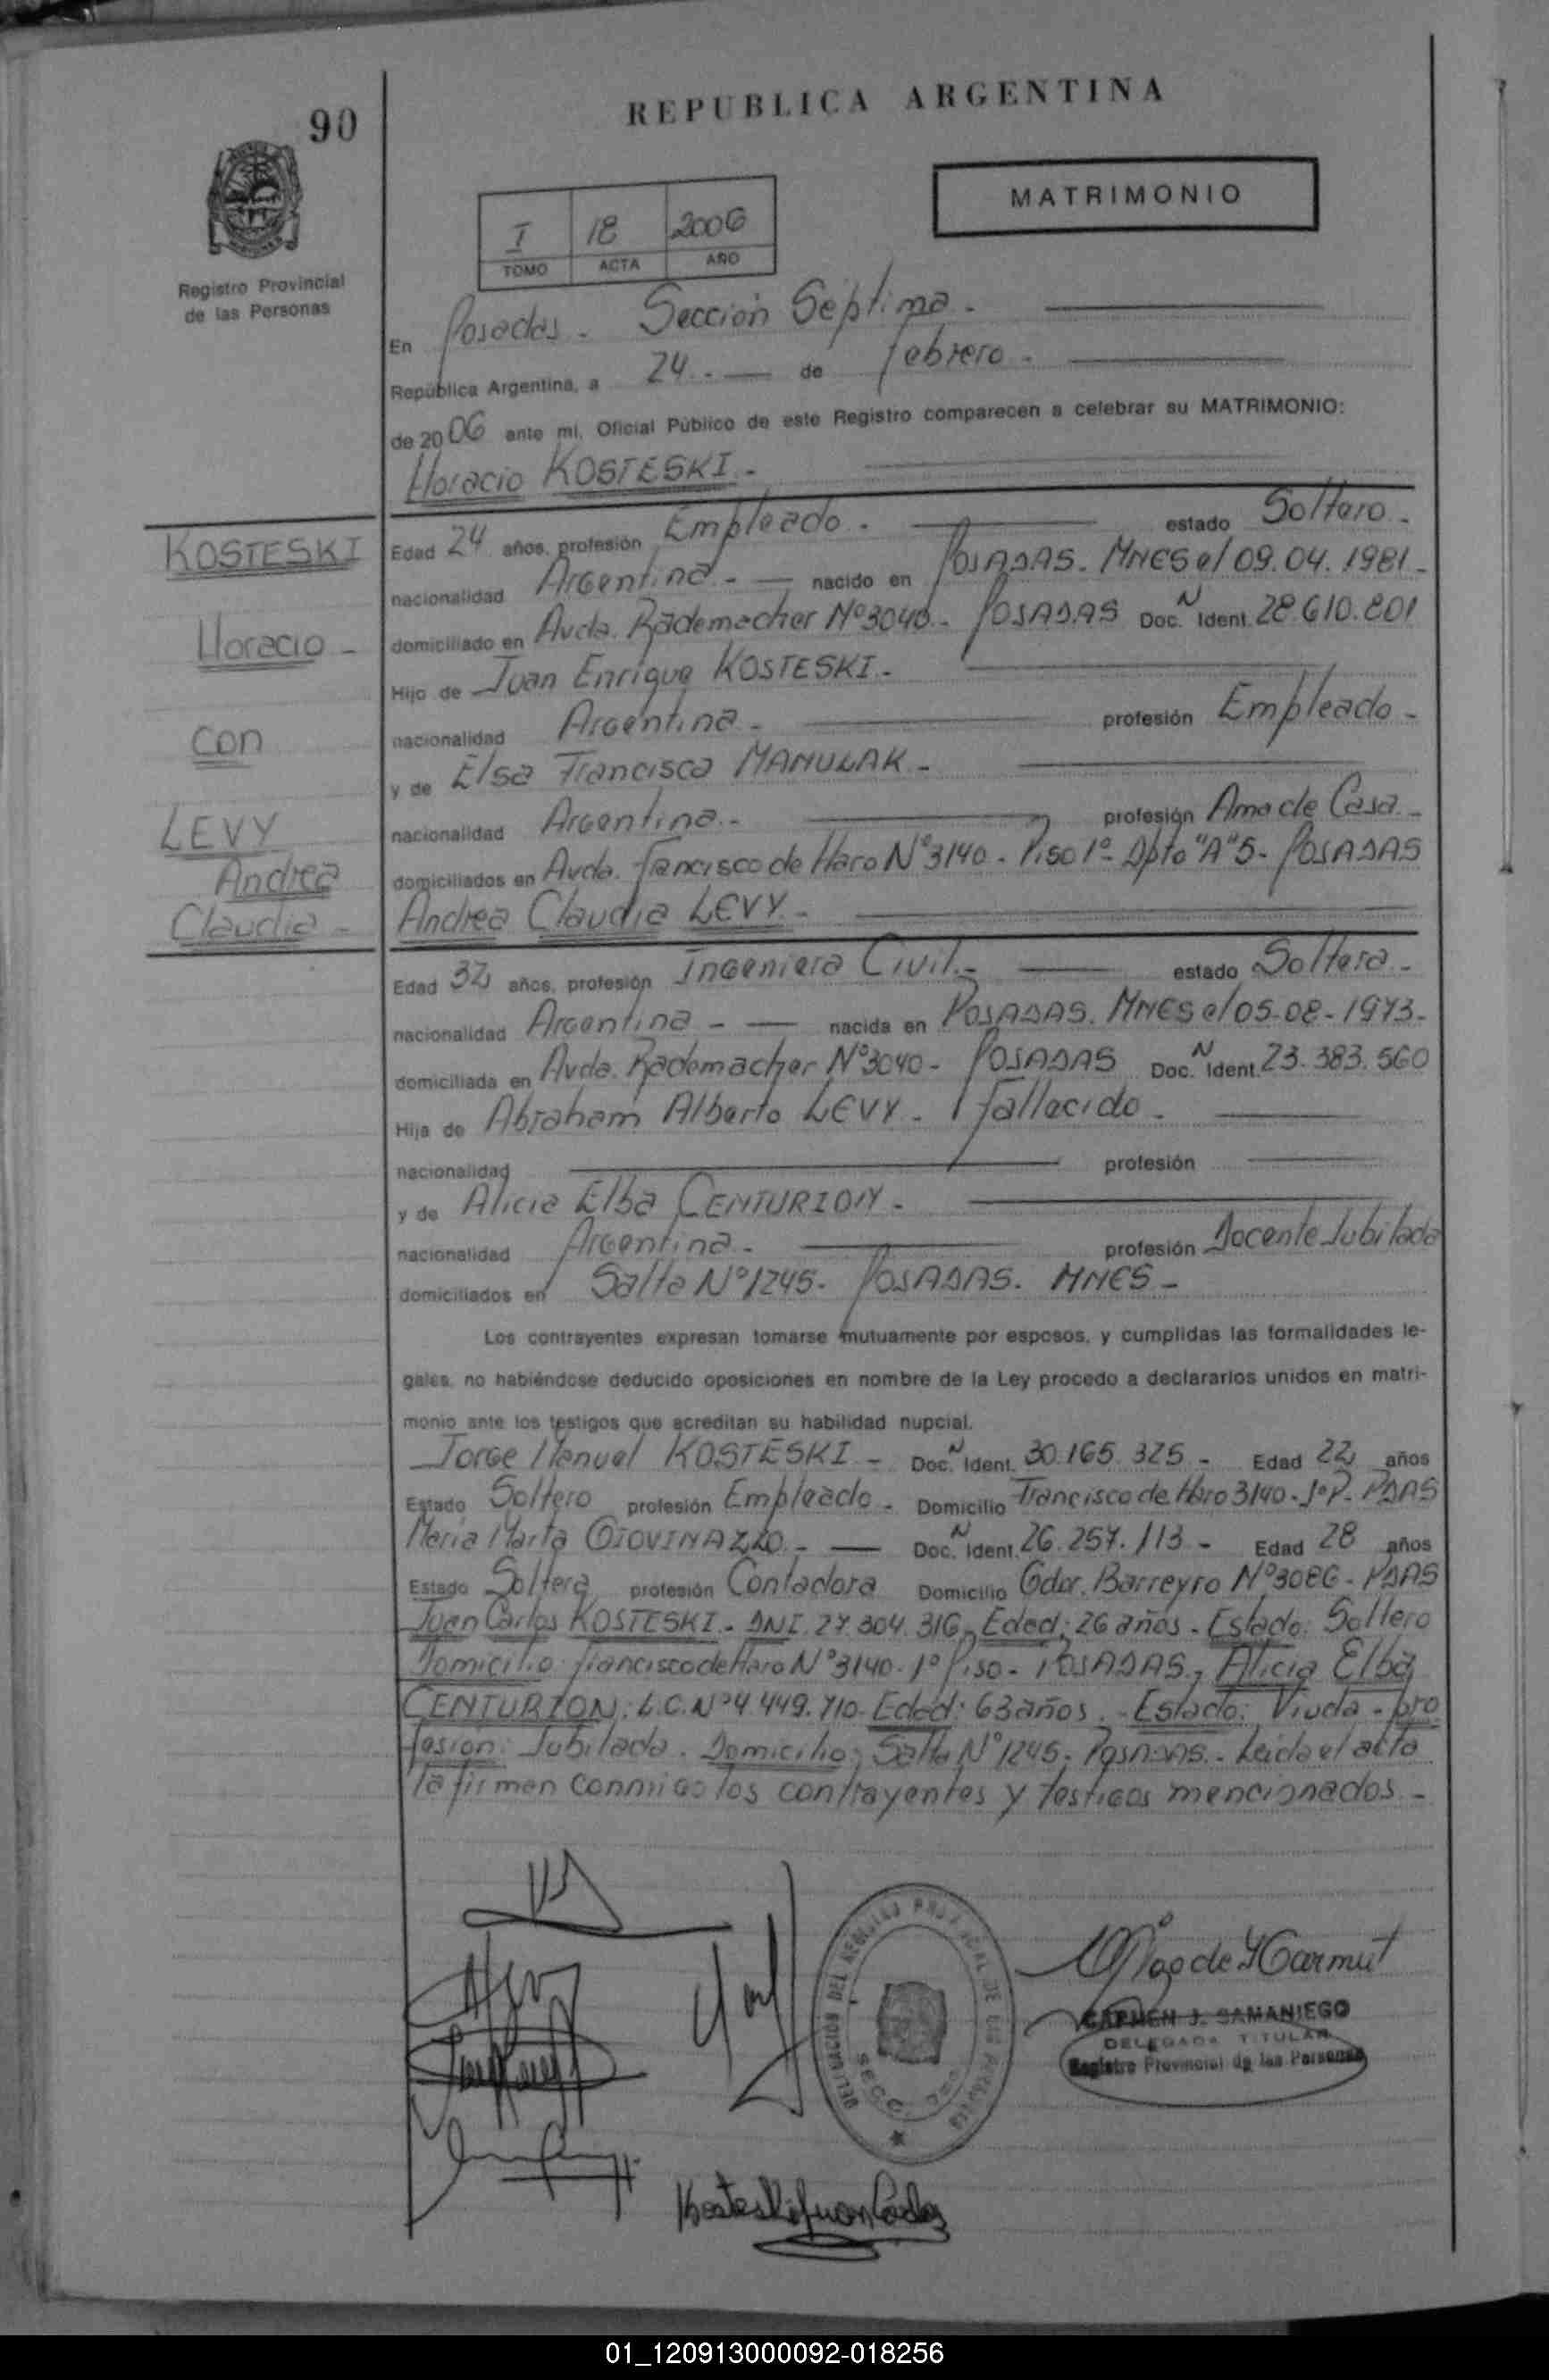 90
REPUBLICA ARGENTINA
MATRIMONIO
I 18 2006
TOMO ACTA AÑO
Registro Provincial
de las Personas
En Posadas. Sección Séptima.
República Argentina, a 24. de febrero.
de 2006 ante mí, Oficial Público de este Registro comparecen a celebrar su MATRIMONIO:
Horacio KOSTESKI.-
KOSTESKI
Horacio -
con
LEVY
Andrea
Claudia -
Edad 24 años, profesión Empleado. estado Soltero.
nacionalidad Argentina.- nacido en POSADAS. MNES el 09.04.1981-
domiciliado en Avda. Rademacher Nº3040.- POSADAS Doc. N Ident. 28.610.801
Hijo de Juan Enrique KOSTESKI.-
nacionalidad Argentina.- profesión Empleado-
y de Elsa Francisca MANULAK.-
nacionalidad Argentina.- profesión Ama de Casa.-
domiciliados en Avda. Francisco de Haro Nº3140. Piso 1º- Dpto "A" 5- POSADAS
Andrea Claudia LEVY.-
Edad 32 años, profesión Ingeniera Civil.- estado Soltera.
nacionalidad Argentina - nacida en POSADAS. MNES el 05-08-1973-
domiciliada en Avda. Rademacher Nº3040- POSADAS Doc. N Ident. 23.383.560
Hija de Abraham Alberto LEVY. Fallecido.
nacionalidad profesión
y de Alicia Elba CENTURION.-
nacionalidad Argentina. profesión Docente Jubilada
domiciliados en Salta Nº1245. POSADAS. MNES-
Los contrayentes expresan tomarse mutuamente por esposos, y cumplidas las formalidades le-
gales, no habiéndose deducido oposiciones en nombre de la Ley procedo a declararlos unidos en matri-
monio ante los testigos que acreditan su habilidad nupcial.
Jorge Manuel KOSTESKI - Doc. N Ident. 30.165.325- Edad 22 años
Estado Soltero profesión Empleado. Domicilio Francisco de Haro 3140-1ºP. PDAS
María Marta GIOVINAZZO.- Doc. N Ident. 26.257.113- Edad 28 años
Estado Soltera profesión Contadora Domicilio Gdor. Barreyro Nº3086- PDAS
Juan Carlos KOSTESKI.- DNI. 27.304.316, Edad: 26 años. Estado: Soltero
Domicilio: Francisco de Haro Nº3140. 1º Piso- POSADAS, Alicia Elba
CENTURION: L.C. Nº4.449.710. Edad: 63 años.- Estado: Viuda- pro
fesión: Jubilada. Domicilio: Salta Nº1245. POSADAS.- Leida el acta
la firman conmigo los contrayentes y testigos mencionados.-
CARMEN J. SAMANIEGO
DELEGADA TITULAR
Registro Provincial de las Personas
Kosteski Juan Carlos
01_120913000092-018256